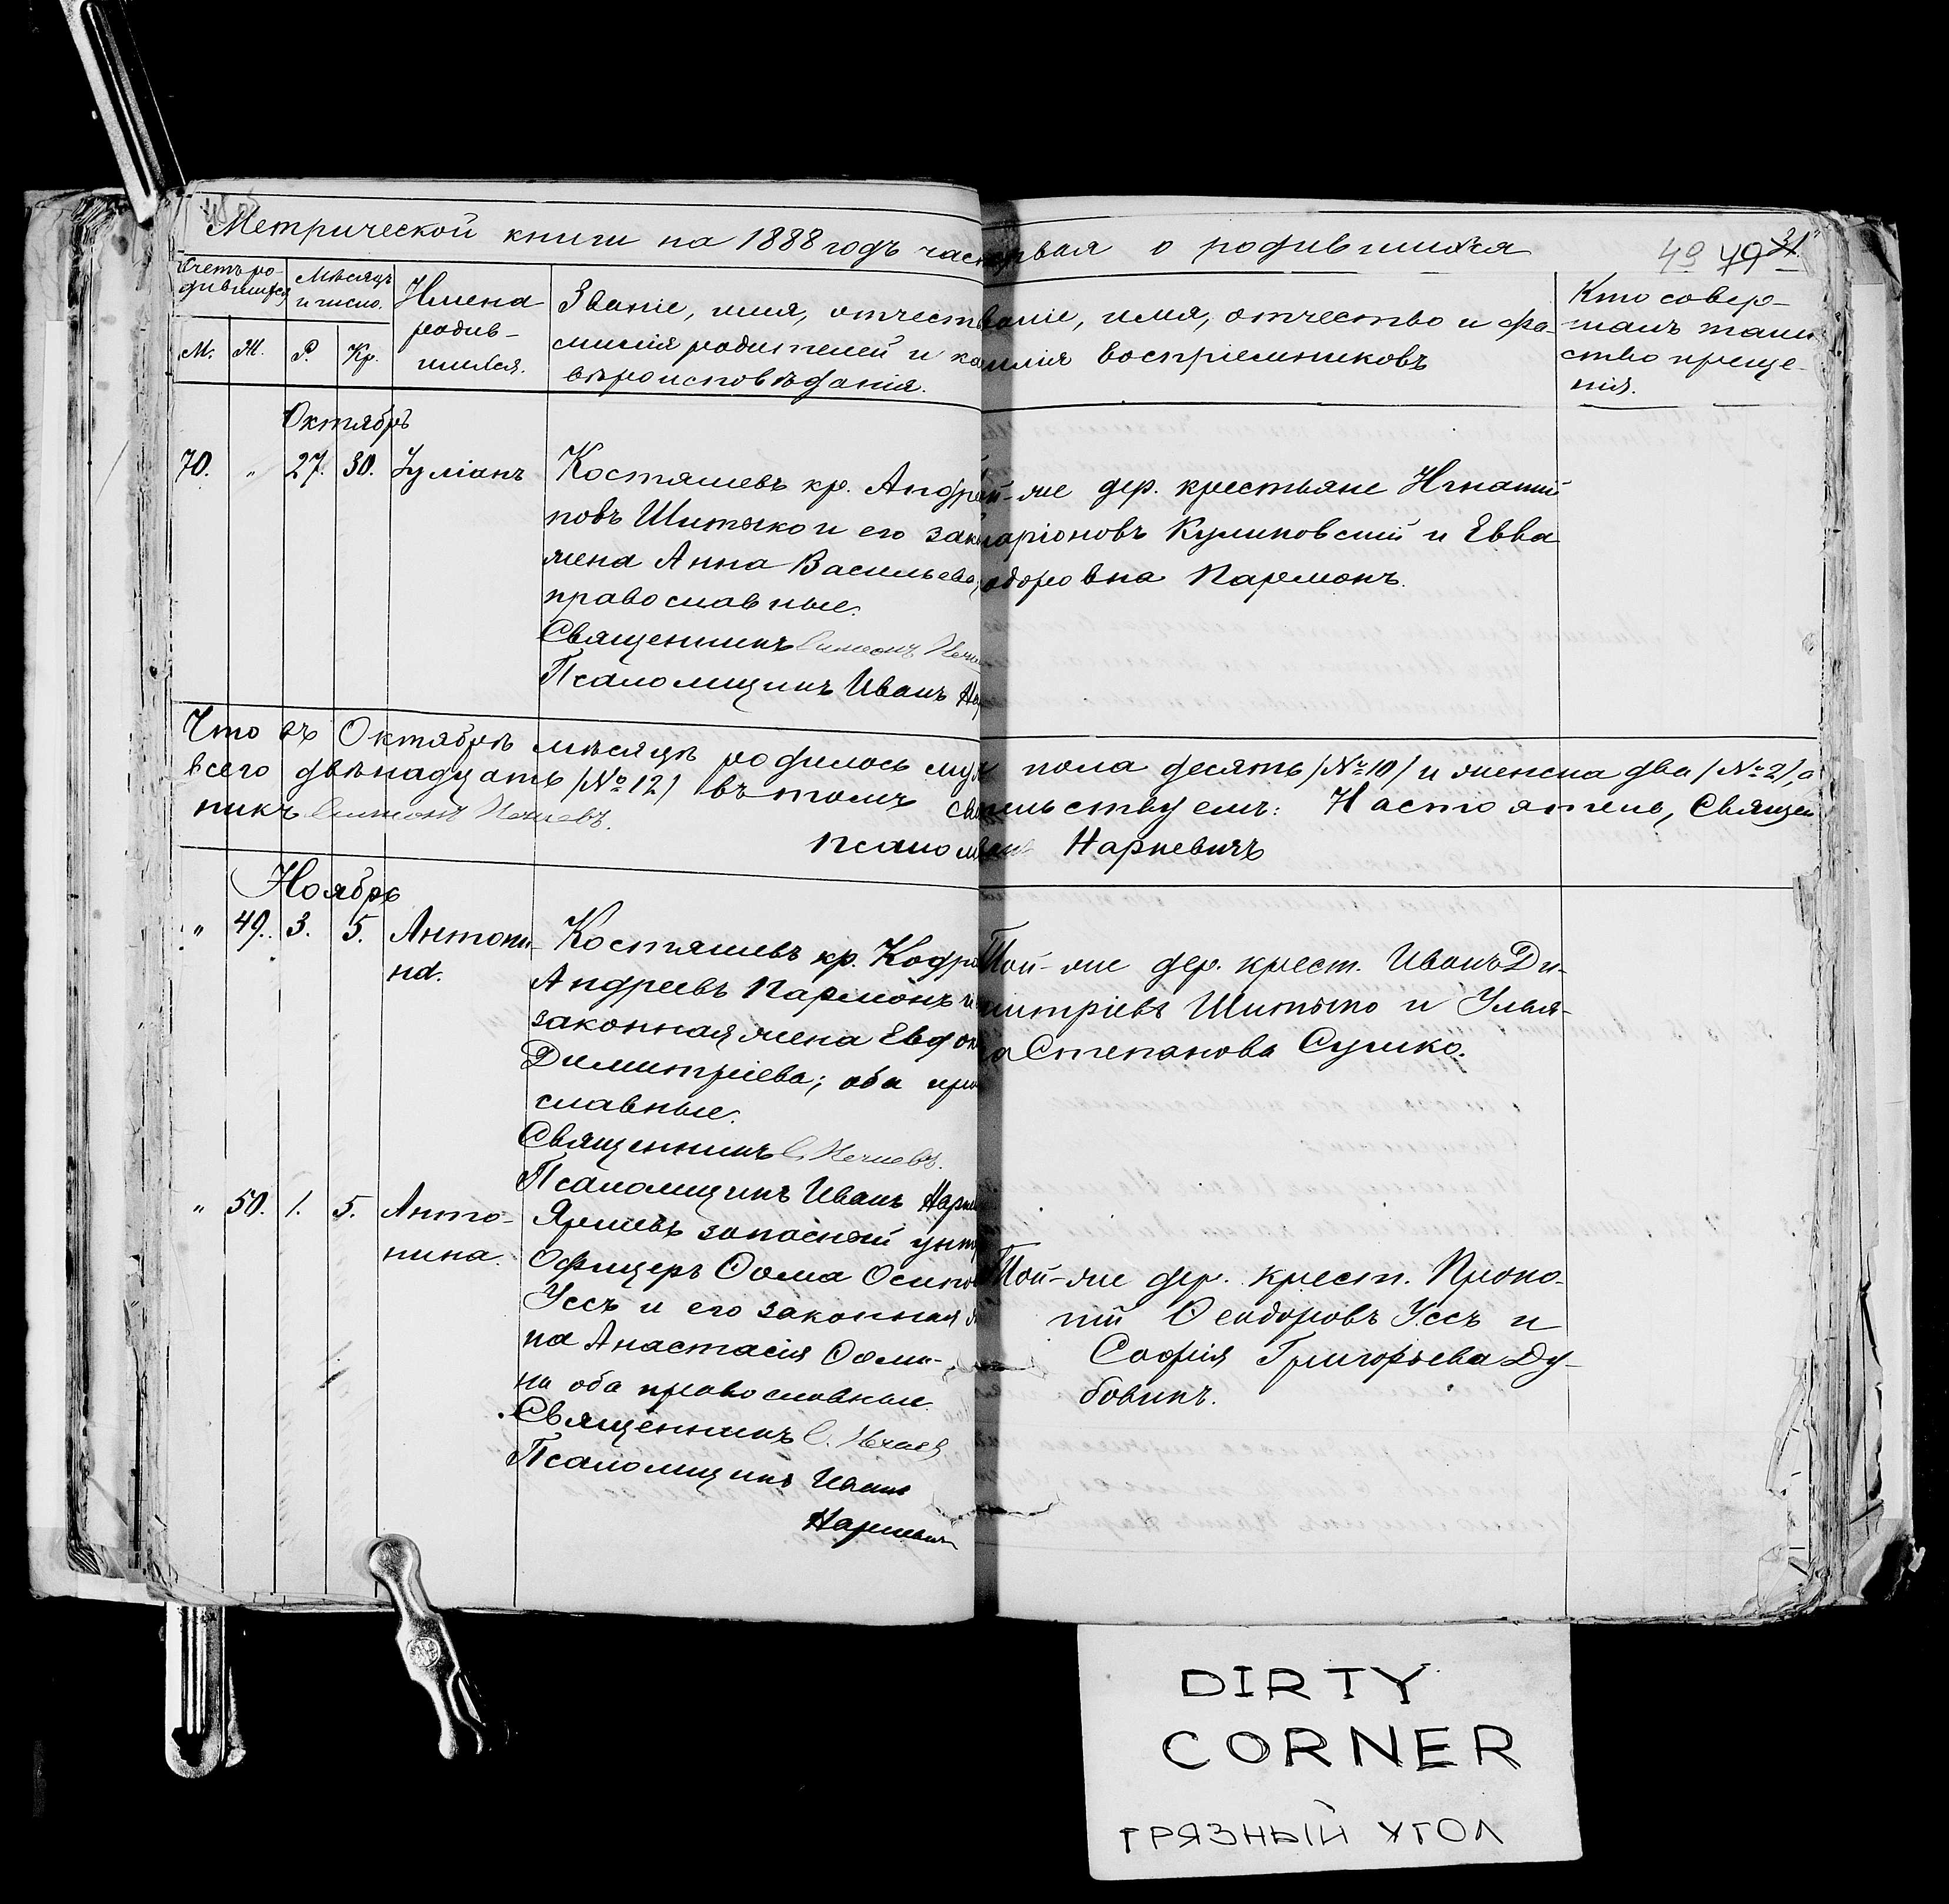 Метрической книги на 1888 годъ часть первая о родившихся
49 79 31
Счетъ ро-
дившихся
Мѣсяцъ
и число.
М. Ж. Р. Кр.
Имена
родив-
шихся.
Званіе, имя, отчест
милія родителей и ка
вѣроисповѣданія.
ваніе, имя, отчество и фа-
милія воспріемниковъ
Кто совер-
шалъ таин
ство креще-
нія.
Октябрь
70. " 27. 30. Іуліанъ
Костяшевъ кр. Андрей
повъ Шитыко и его зак
жена Анна Васильева,
православные.
Священникъ Симеонъ
Псаломщикъ Иванъ
й-же дер. крестьяне Игнатій
ларіоновъ Куликовскій и Евва
одоровна Пармонъ.
Что въ Октябрѣ мѣсяцѣ родилось муж пола десять /№ 10/ и женска два /№ 2/, а
всего двѣнадцать /№ 12/ въ томъ свидѣтельствуемъ: Настоятель, Священ
никъ Симеонъ
Псаломщикъ Наркевичъ
Ноябрь
" 49. 3. 5. Антони-
на.
Костяшевъ кр. Кодра
Андреевъ Пармонъ и
законная жена Евдок
Димитріева; оба пра
славные.
Священникъ С.
Псаломщикъ Иванъ Нарке
Той-же дер. крест. Иванъ Ди-
митріевъ Шитыко и Улья-
на Степанова Сушко.
" 50. 1. 5. Анто-
нина.
запасный унтер
Офицеръ Ѳома Осипов
Уссъ и его законная же
на Анастасія Ѳоми-
на оба православные.
Священникъ С.
Псаломщикъ Иванъ
Наркевичъ
Той-же дер. крест. Проко-
пій Ѳеодоровъ Уссъ и
Софія Григорьева Ду-
бовикъ.
DIRTY
CORNER
ГРЯЗНЫЙ УГОЛ